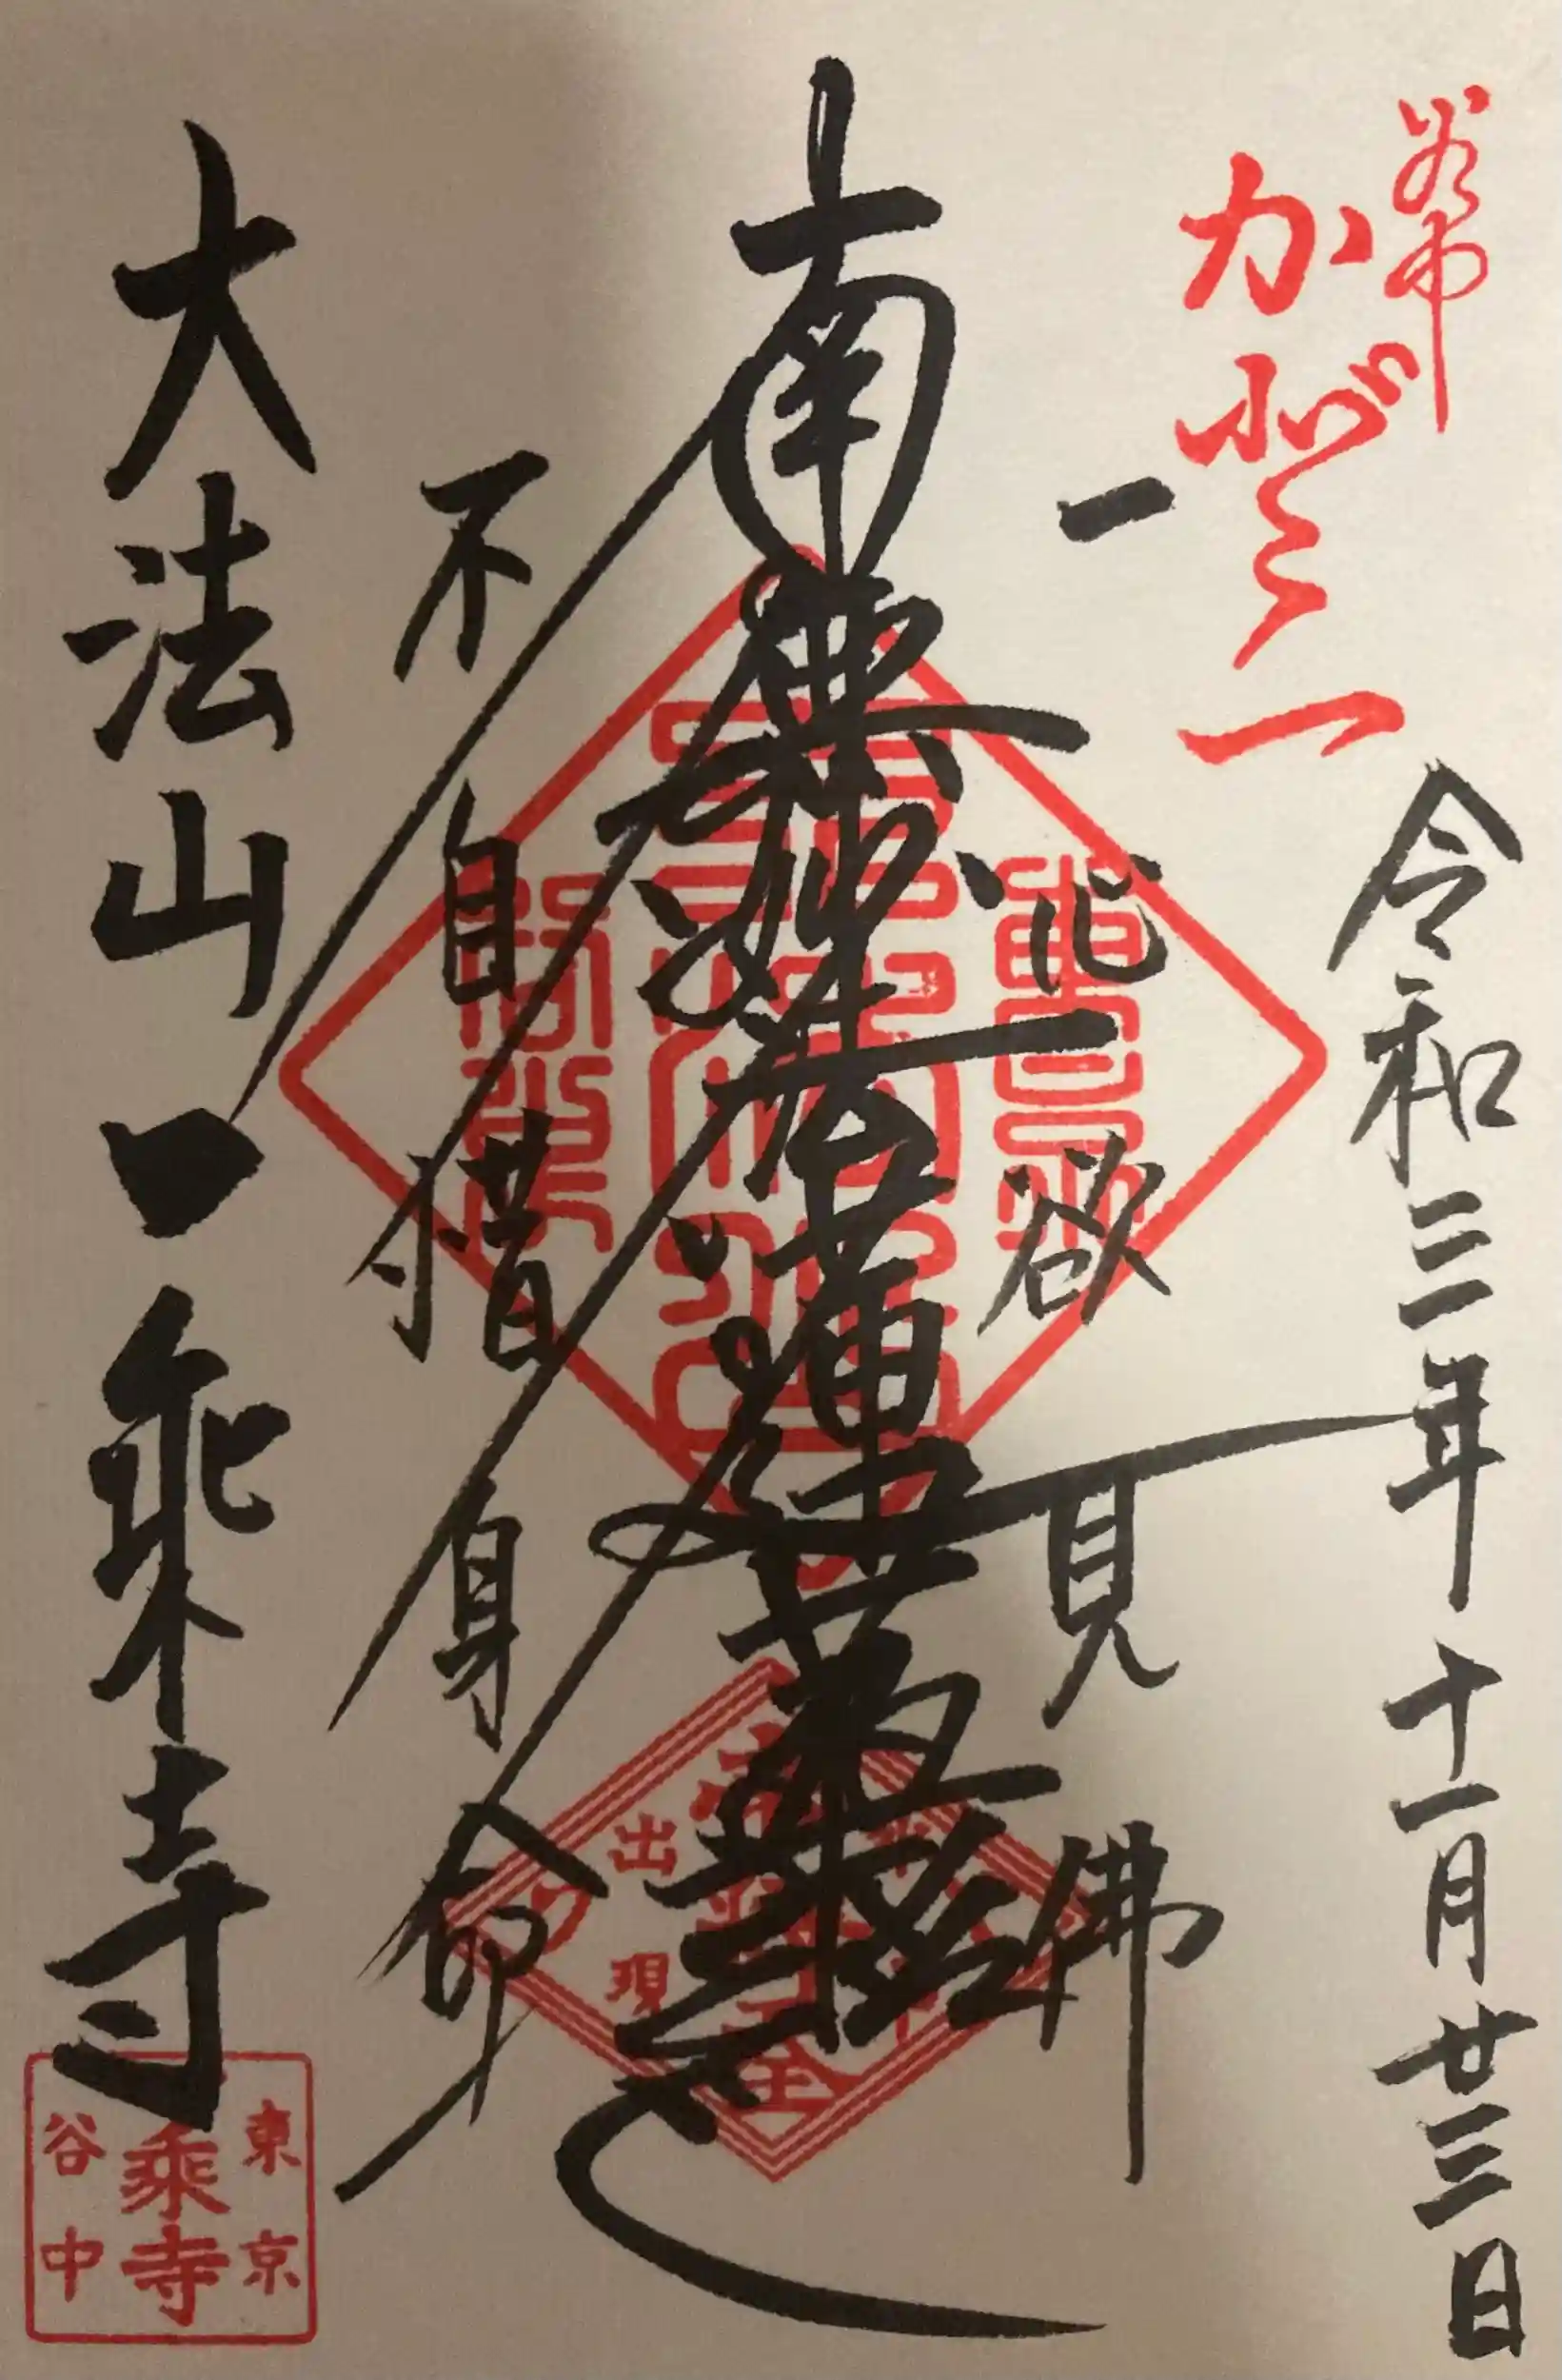 令和三年十一月廿三日
一心欲見佛
南無妙法蓮華経
不自惜身命
大法山一乘寺
出現
東京
乘寺
谷中